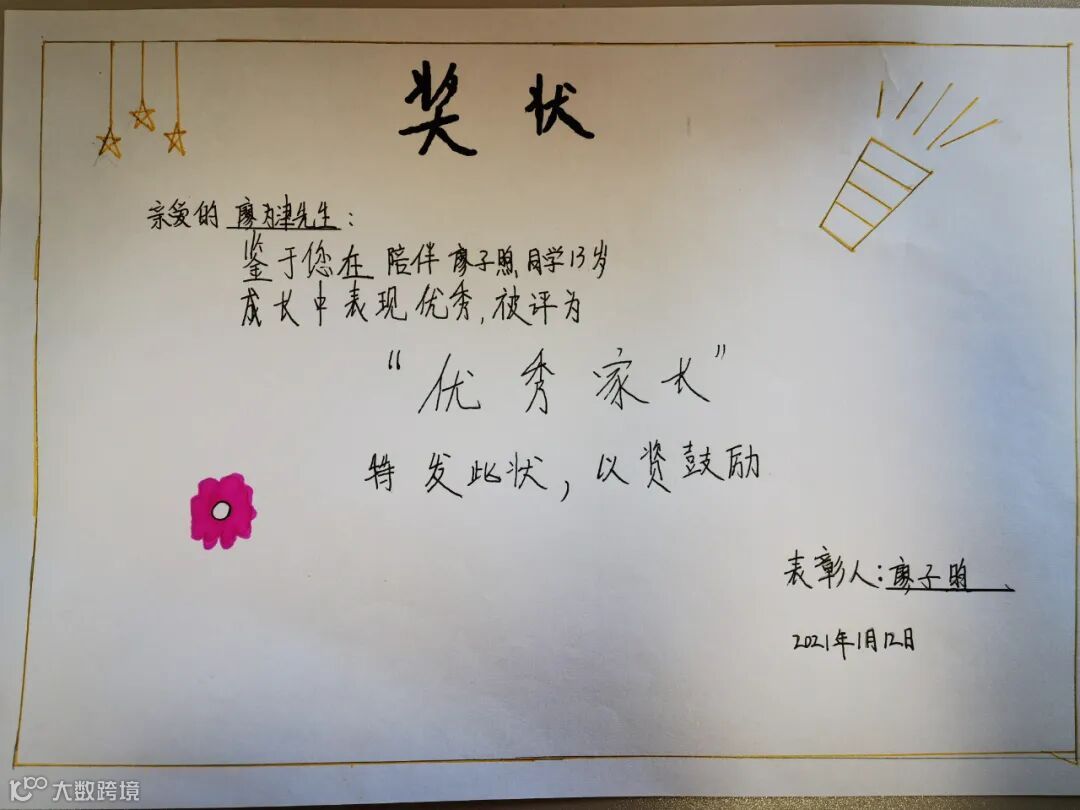 奖状
亲爱的 廖为津先生：
鉴于您在 陪伴 廖子煦 同学13岁
成长中表现优秀，被评为
“优秀家长”
特发此状，以资鼓励
表彰人：廖子煦
2021年1月12日
大数跨境